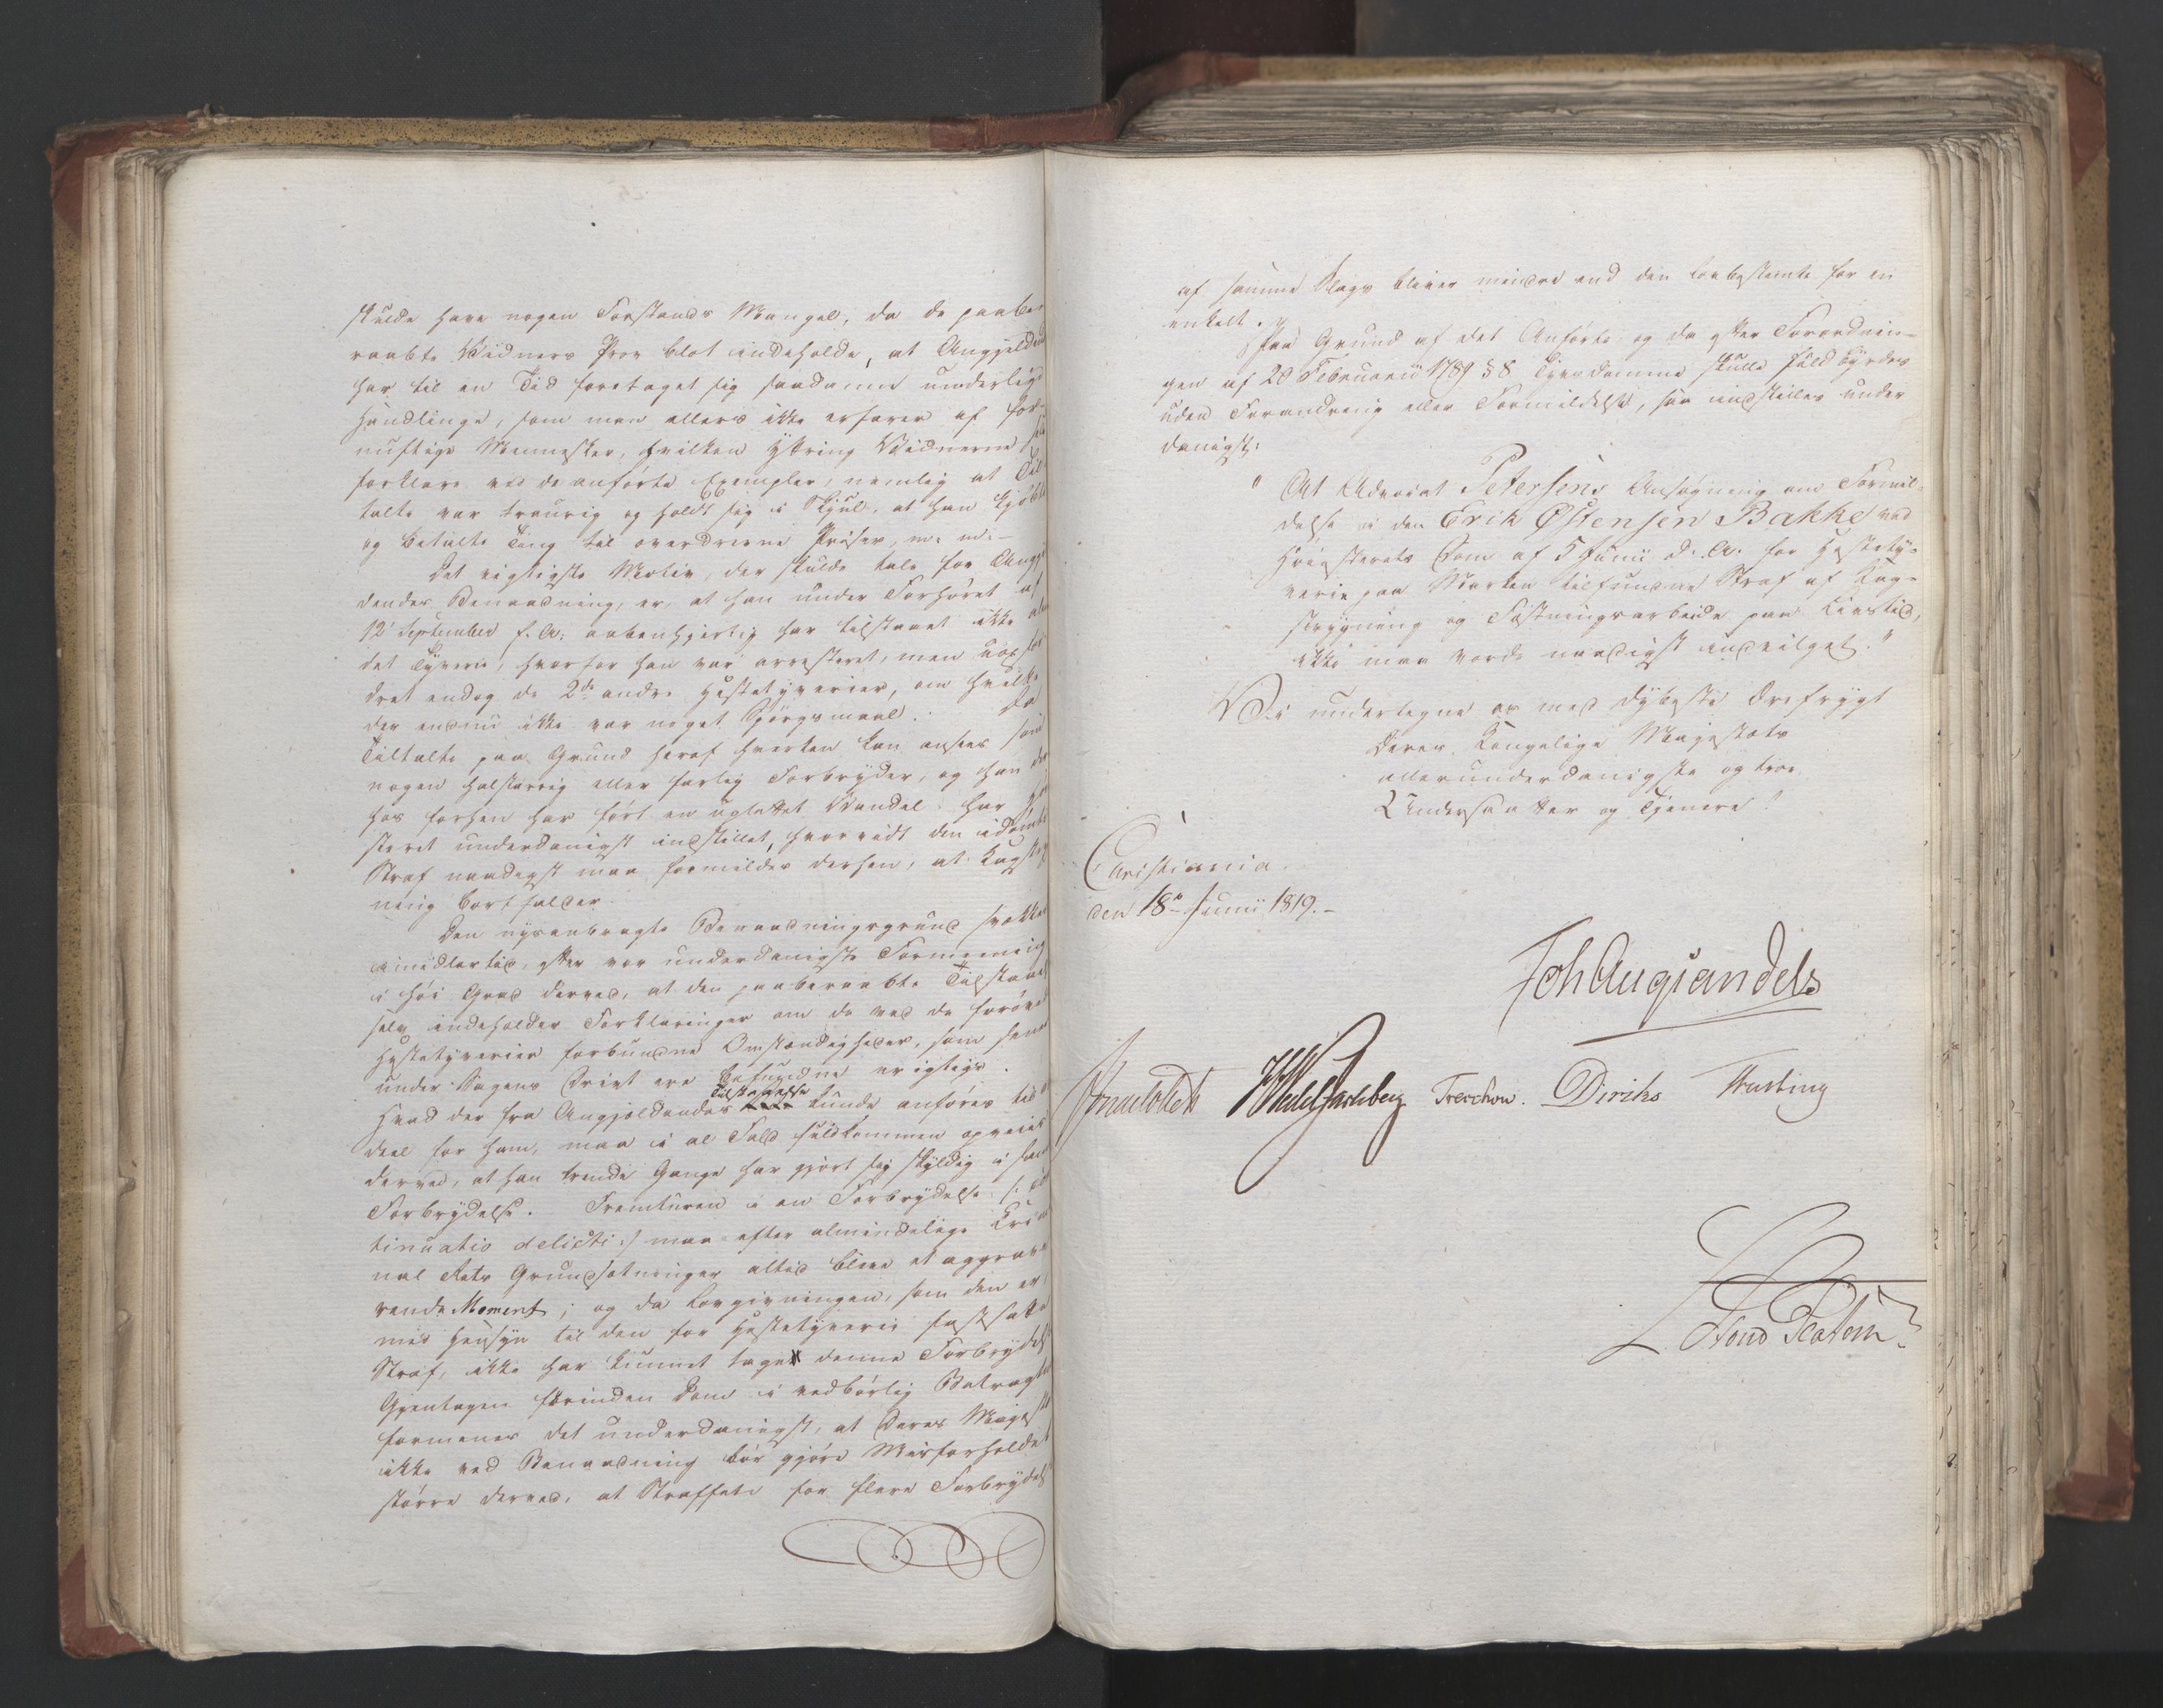 skulde have nogen Forstands Mangel, da de paabe-
raabte Vidners Prov blot indeholde, at Angjelden
har til en Tid foretaget sig saadanne underlige
Handlinge, som man ellers ikke erfarer af for-
nuftige Mennesker, hvilken Yttring Vidnerne
forklare ved de anførte Exempler, nemlig at Til-
talte var traurig og holdt sig i Skjul, at han kjøbte
og betalte Ting til overdrevne Priser, m: m: -
Det vigtigste Motiv, der skulde tale for Angjel-
dendes Benaadning, er, at han under Forhøret af
12' September f. A: aabenhjertig har tilstaaet ikke alene
det Tyverie, hvorfor han var arresteret, men uopfor-
dret endog de 2de andre Hestetyverier, om hvilke
der endnu ikke var noget Spørgsmaal. Da
Tiltalte paa Grund heraf hverken kan ansees som
nogen halstarrig eller farlig Forbryder, og han des-
hos forhen har ført en uplettet Vandel har
steret underdanigst indstillet, hvorvidt den idømte
Straf naadigst maa formildes derhen, at Kagstryg-
ning bortfalder.
Den nysanbragte Benaadningsgrund svækkes
imidlertid, efter vor underdanigste Formeening
i høi Grad derved, at den paaberaabte Tilstaaelse
selv indeholder Forklaringer om de ved de forøvede
Hestetyverier forbundne Omstændigheder, som senere
under Sagens Drivt ere befundne urigtige.
Hvad der fra Angjeldendes Tilstaaelse kunde anføres til
deel for ham, maa i al Fald fuldkommen opveies
derved, at han trende Gange har gjort sig skyldig i samme
Forbrydelse. Fremturen i en Forbrydelse (: con-
tinuatio delicti :) maa efter almindelige Crimi-
nal Rets Grundsætninger altid blive et aggrave-
rende Moment; og da Lovgivningen, som den er,
med Hensyn til den for Hestetyverie fastsatte
Straf, ikke har kunnet tage denne Forbrydelses
Gjentagen førinden Dom i vedbørlig Betragtning
formenes det underdanigst, at Deres Majestæt
ikke ved Benaadning bør gjøre Misforholdet
større derved, at Straffen for flere Forbrydelser
af samme Slags bliver mindre end den lovbestemte for en
enkelt.
Paa Grund af det Anførte og da efter Forordnin-
gen af 20 Februarii 1789 § 8 Tyvsdomme skulle fuldbyrdes
uden Forandring eller Formildelse, saa indstilles under-
danigst:
" At Advocat Petersens Ansøgning om Formil-
delse i den Erik Østensen Bakke ved
Høiesterets Dom af 5 Junii d. A. for Hestety-
verie paa Marken tilfundne Straf af Kag-
strygning og Fæstningsarbeide paa Livstid,
ikke maa vorde naadigst indvilget."
Vi undertegne os med dybeste Ærefrygt
Deres Kongelige Majestæts
allerunderdanigste og troe
Undersaatter og Tjenere!
Christiania
den 18de Junii 1819.-
Joh Aug Sandels
Sommerhielm HWedel Jarlsberg Treschow. Diriks Fasting